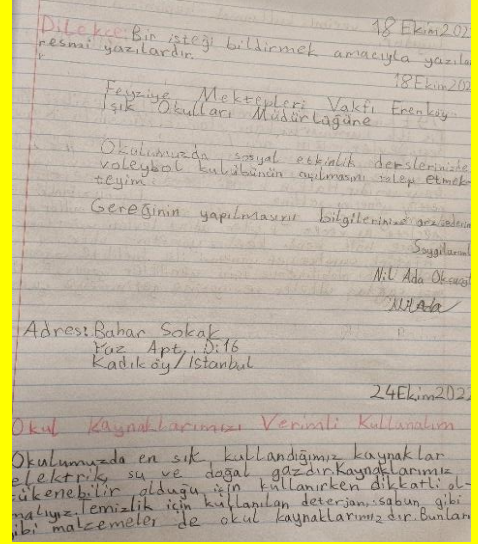 18 Ekim 202
Dilekçe: Bir isteği bildirmek amacıyla yazıla
resmi yazılardır.
18 Ekim 202
Feyziye Mektepleri Vakfı Erenköy
Işık Okulları Müdürlüğüne
Okulumuzda sosyal etkinlik derslerinizde
voleybol kulübünün açılmasını talep etmek-
teyim.
Gereğinin yapılmasını bilgilerinize
Saygılarıml
Nil Ada
Nil Ada
Adres: Bahar Sokak
Yaz Apt. D:16
Kadıköy/İstanbul
24 Ekim 202
Okul Kaynaklarımızı Verimli Kullanalım
Okulumuzda en sık kullandığımız kaynaklar
elektrik, su ve doğal gazdır. Kaynaklarımız
tükenebilir olduğu için kullanırken dikkatli ol-
malıyız. Temizlik için kullanılan deterjan, sabun gibi
gibi malzemeler de okul kaynaklarımızdır. Bunları